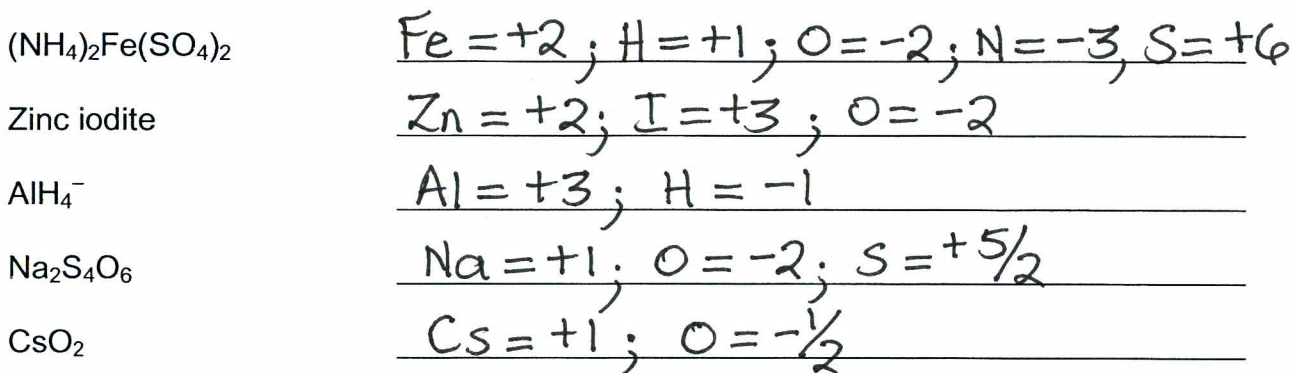 (NH₄)₂Fe(SO₄)₂ Fe = +2 ; H = +1 ; O = -2 ; N = -3, S = +6
Zinc iodite Zn = +2 ; I = +3 ; O = -2
AlH₄⁻ Al = +3 ; H = -1
Na₂S₄O₆ Na = +1 ; O = -2 ; S = +5/2
CsO₂ Cs = +1 ; O = -1/2